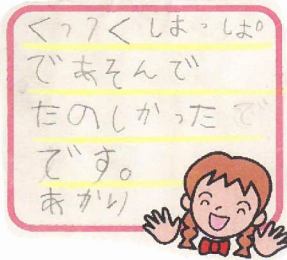 くっつくしまっしま。
であそんで
たのしかった で
です。
あかり